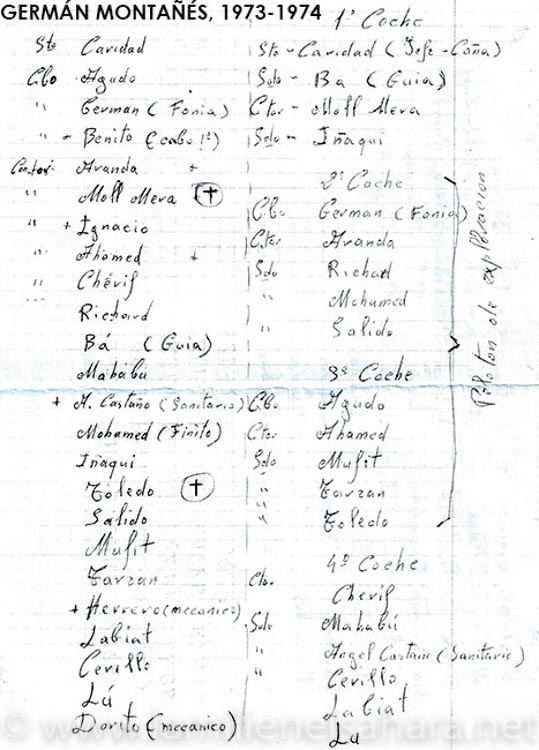 GERMÁN MONTAÑÉS, 1973-1974
Sto Caridad
Cbo Agudo
" German (Fonia)
" - Benito (cabo 1º)
Aranda +
" Moll Mera ✝
" + Ignacio
" Ahamed +
" Chérif
Richard
Bá (Guia)
Mahabú
+ A. Castaño (Sanitario)
Mohamed (Fiñito)
Iñaqui
Toledo ✝
Salido
Mufit
Tarzan
+ Herrero (mecanico)
Labiat
Cerillo
Lú
Dorito (mecanico)
1º Coche
Sto - Caridad (Jefe - Caña)
Sdo - Bá (Guia)
Ctor - Moll Mera
Sdo - Iñaqui
2º Coche
Cbo German (Fonia)
Ctor Aranda
Sdo Richad
" Mohamed
" Salido
3º Coche
Cbo Agudo
Ctor Ahamed
Sdo Mufit
" Tarzan
" Toledo
Peloton de exploracion
4º Coche
Ctor Cherif
Sdo Mahabú
" Angel Castaño (Sanitario)
" Cerillo
Labiat
Lu
© www.lamilienelsahara.net